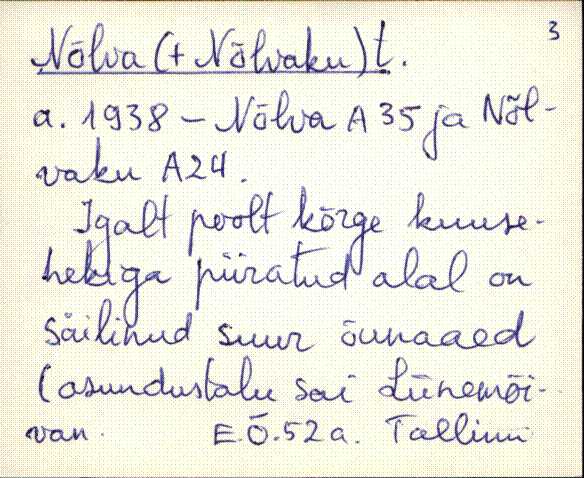 3
Nõlva (+ Nõlvaku) t.
a. 1938 – Nõlva A 35 ja Nõl-
vaku A24.
Igalt poolt kõrge kuuse-
hekiga piiratud alal on
säilinud suur õunaaed
(asundustalu sai
van. E.Õ. 52 a. Tallinn